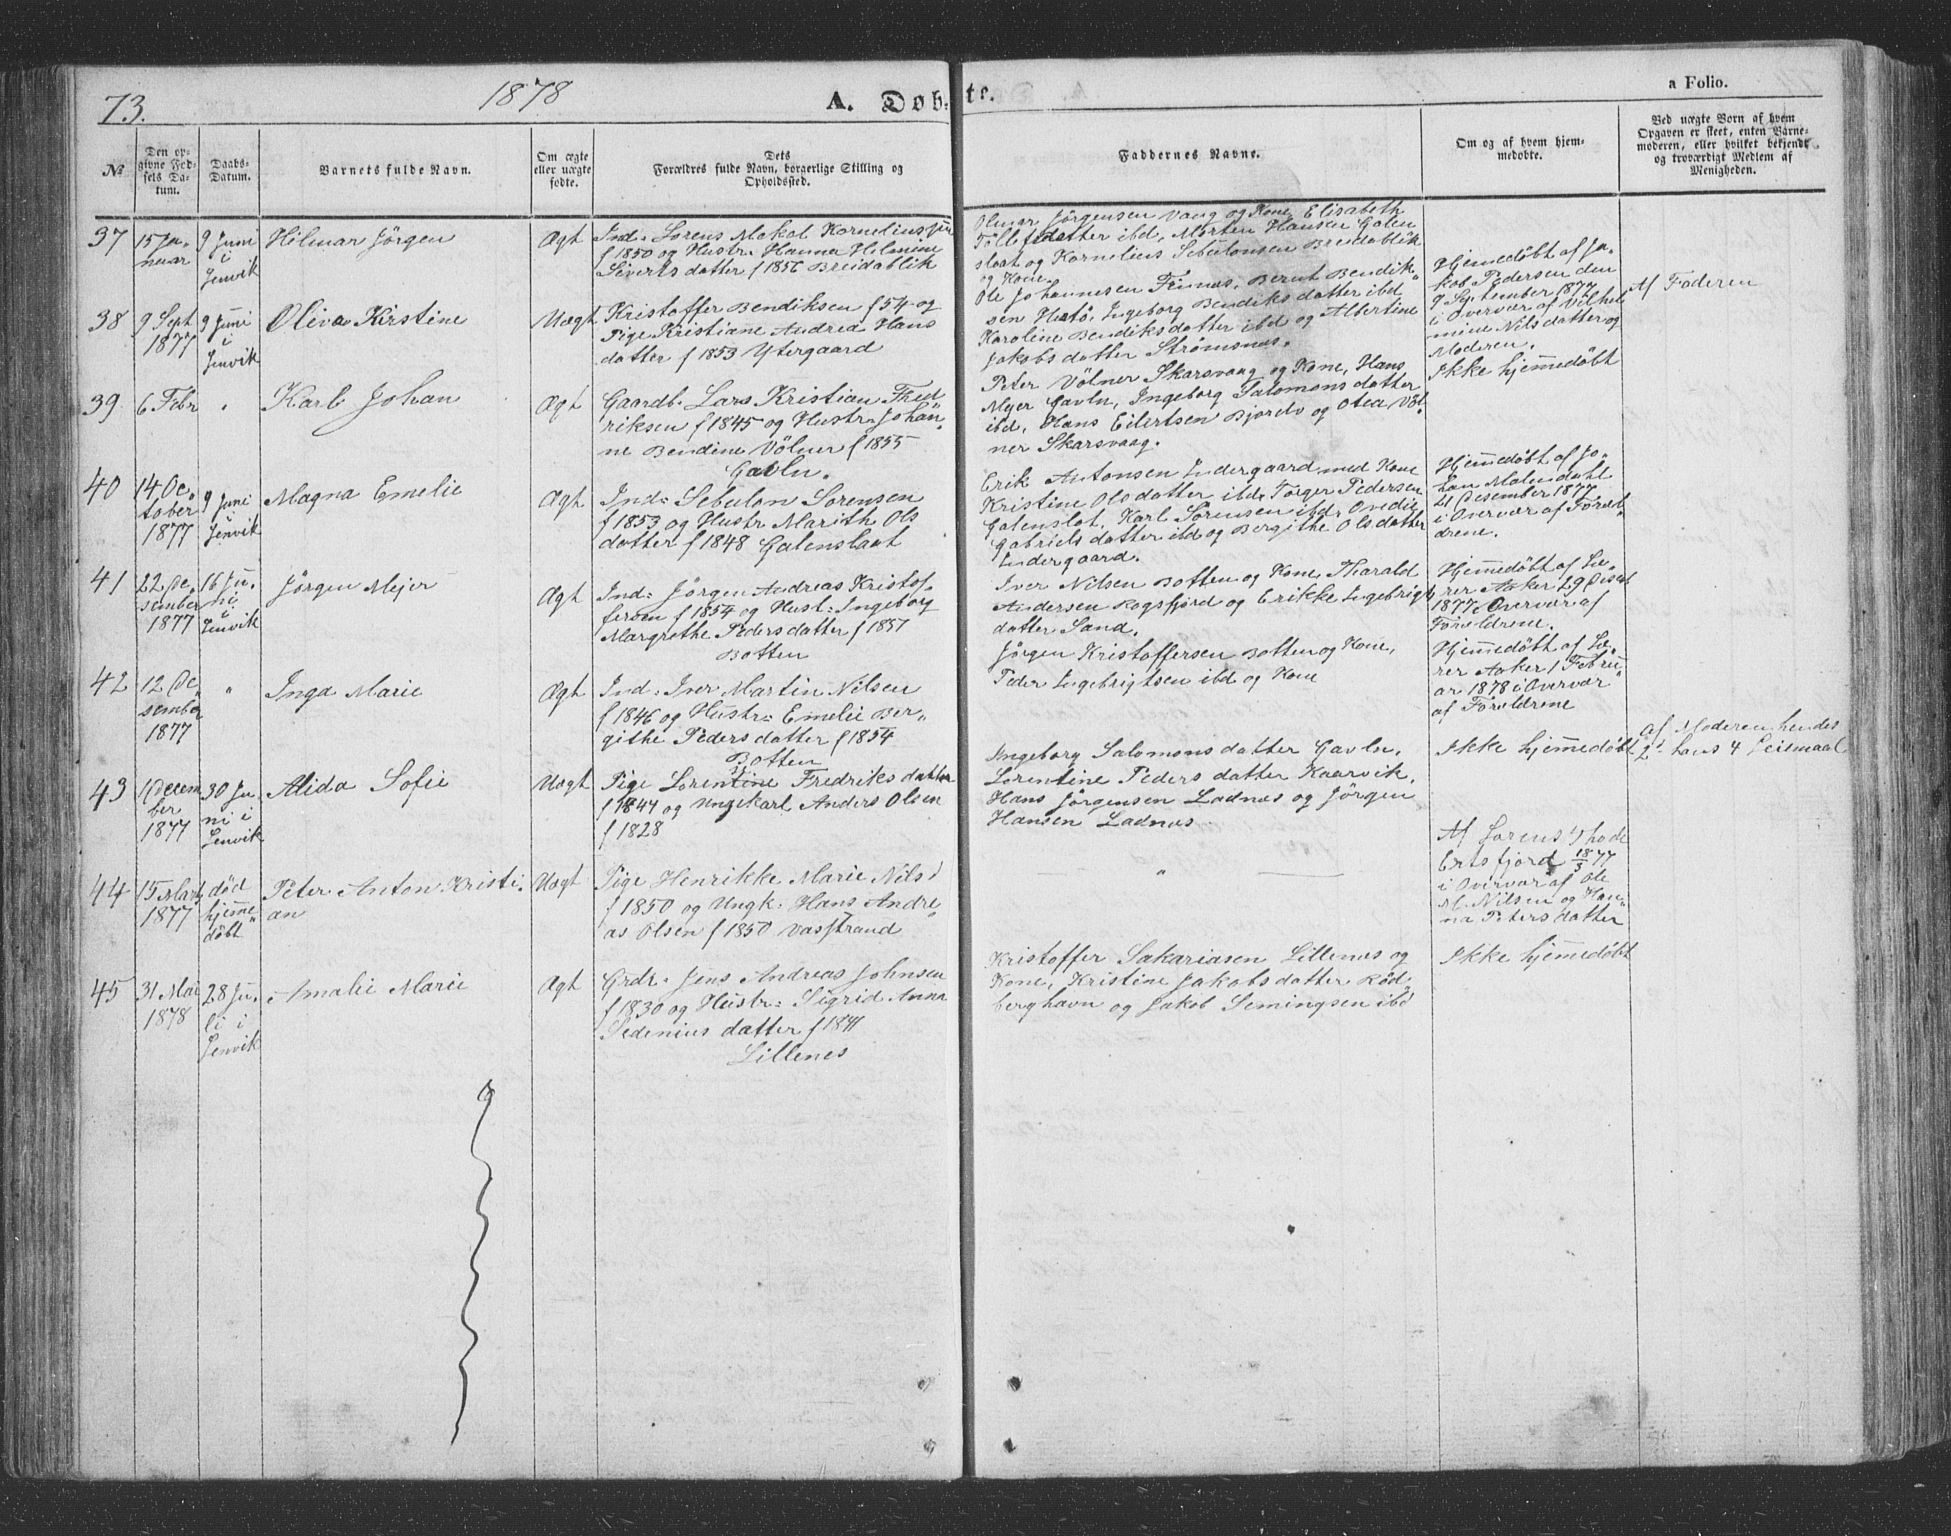 73.
1878
A. Døb-
te.
a Folio.
№
Den op-
givne Fød-
sels Da-
tum.
Daabs-
Datum.
Barnets fulde Navn.
Om ægte
eller uægte
fødte.
Dets
Forældres fulde Navn, borgerlige Stilling og
Opholdssted.
Faddernes Navne.
Om og af hvem hjem-
medøbte.
Ved uægte Børn af hvem
Opgaven er skeet, enten Barne-
moderen, eller hvilket bekjendt
og troværdigt Medlem af
Menigheden.
37
15 Ja-
nuar
9 Juni
i
Lenvik
Hilmar Jörgen
Ægt
Ind: Sørens Kornelius
f 1850 og Hustr: Hanna
Siverts datter f 1856 Breidablik
Jörgensen Vang og Kone, Elisabeth
datter ibd, Morten Hansen Galen
slaat og Kornelius Sebulonsen Breidablik
og Kone.
38
9 Sept
1877
9 Juni
i
Lenvik
Oliva Kirstine
Uægt
Kristoffer Bendiksen f 54 og
Pige Kristiane Andrea Hans
datter f 1853 Ytergaard
Ole Johannesen Finnes, Bernt Bendik-
sen Ingeborg Bendiks datter ibd
Karoline Bendiksdatter ibd og Albertine
Jakobs datter Strømsnes.
Hjemmedøbt af Ja-
kob Pedersen den
9 September 1877
i Overvær af Vilhel
mine Nilsdatter og
Moderen.
Af Faderen
39
6 Febr
"
Karl Johan
Ægt
Gaardb. Lars Kristian Fred
riksen f 1845 og Hustr: Johan-
ne Bendine Völner f 1855
Gavln.
Peter Völner Skarsvaag og Kone, Hans
Mejer Gavln, Ingeborg Salomons datter
ibd, Hans Eilertsen Bjorelv og Otea Völ-
ner Skarsvaag.
Ikke hjemmedöbt
40
14 Oc-
tober
1877
9 Juni
i
Lenvik
Magna Emelie
Ægt
Ind: Sebulon Sørensen
f 1853 og Hustr Marith Ols
datter f 1848 Galenslaat
Erik Antonsen Indergaard med Kone
Kristine Olsdatter ibd, Torger Pedersen
Galenslot, Karl Sørensen ibd, Ovedie
Gabriels datter ibd og Bergithe Ols datter
Indergaard.
Hjemmedøbt af Jo-
han
21 Desember 1877
i Overvær af Foræl-
drene.
41
22 De-
sember
1877
16 Ju-
ni
i
Lenvik
Jörgen Mejer
Ægt
Ind: Jörgen Andreas Kristof-
fersen f 1854 og Hust: Ingeborg
Margrethe Peders datter f 1857
Botten
Iver Nilsen Botten og Kone, Tharald
Andersen Rogsfjord og Erikke Ingebrigts
datter Sand.
Hjemmedøbt af Læ-
rer Aaker 29 Desem
1877 i Overvær af
Forældrene.
42
12 De
sember
1877
"
Inga Marie
Ægt
Ind: Iver Martin Nilsen
f 1846 og Hustr: Emelie Ber-
githe Peders datter f 1854
Botten
Jörgen Kristoffersen Botten og Kone,
Peder Ingebrigtsen ibd og Kone
Hjemmedöbt af Læ-
rer Aaker 1 Febru
ar 1878 i Overvær
af Forældrene
43
December
1877
30 Ju-
ni i
Lenvik
Alida Sofie
Uægt
Pige Lorentine Fredriks datter
f 1847 og Ungekarl Anders Olsen
f 1828
Ingeborg Salomons datter Gavln,
Lorentine Peders datter Kaarvik,
Hans Jörgensen Ladnes og Jörgen
Hansen Ladnes.
Ikke hjemmedøbt
af Moderen hendes
2det hans 4 Leiermaal
44
15 Marts
1877
død
hjemme-
döbt
Peter Anton Kristi-
an
Uægt
Pige Henrikke Marie Nilsd
f 1850 og Ungk: Hans Andre-
as Olsen f 1850 Vasstrand
"
Af Sørens Thode
Ertsfjord 18/3 77
i Overvær af Ole
M. Nilsen og Han-
na Peters datter
45
31 Mai
1878
28 Ju-
li i
Lenvik
Amalie Marie
Ægt
Grdr. Jens Andreas Johnsen
f 1830 og Hustr: Sigrid Anna
Sedenius datter f 1841
Lillenes
Kristoffer Sakariasen Lillenes og
Kone, Kristine Jakobs datter Rød-
berghavn og Jakob Semingsen ibd
Ikke hjemmedöbt